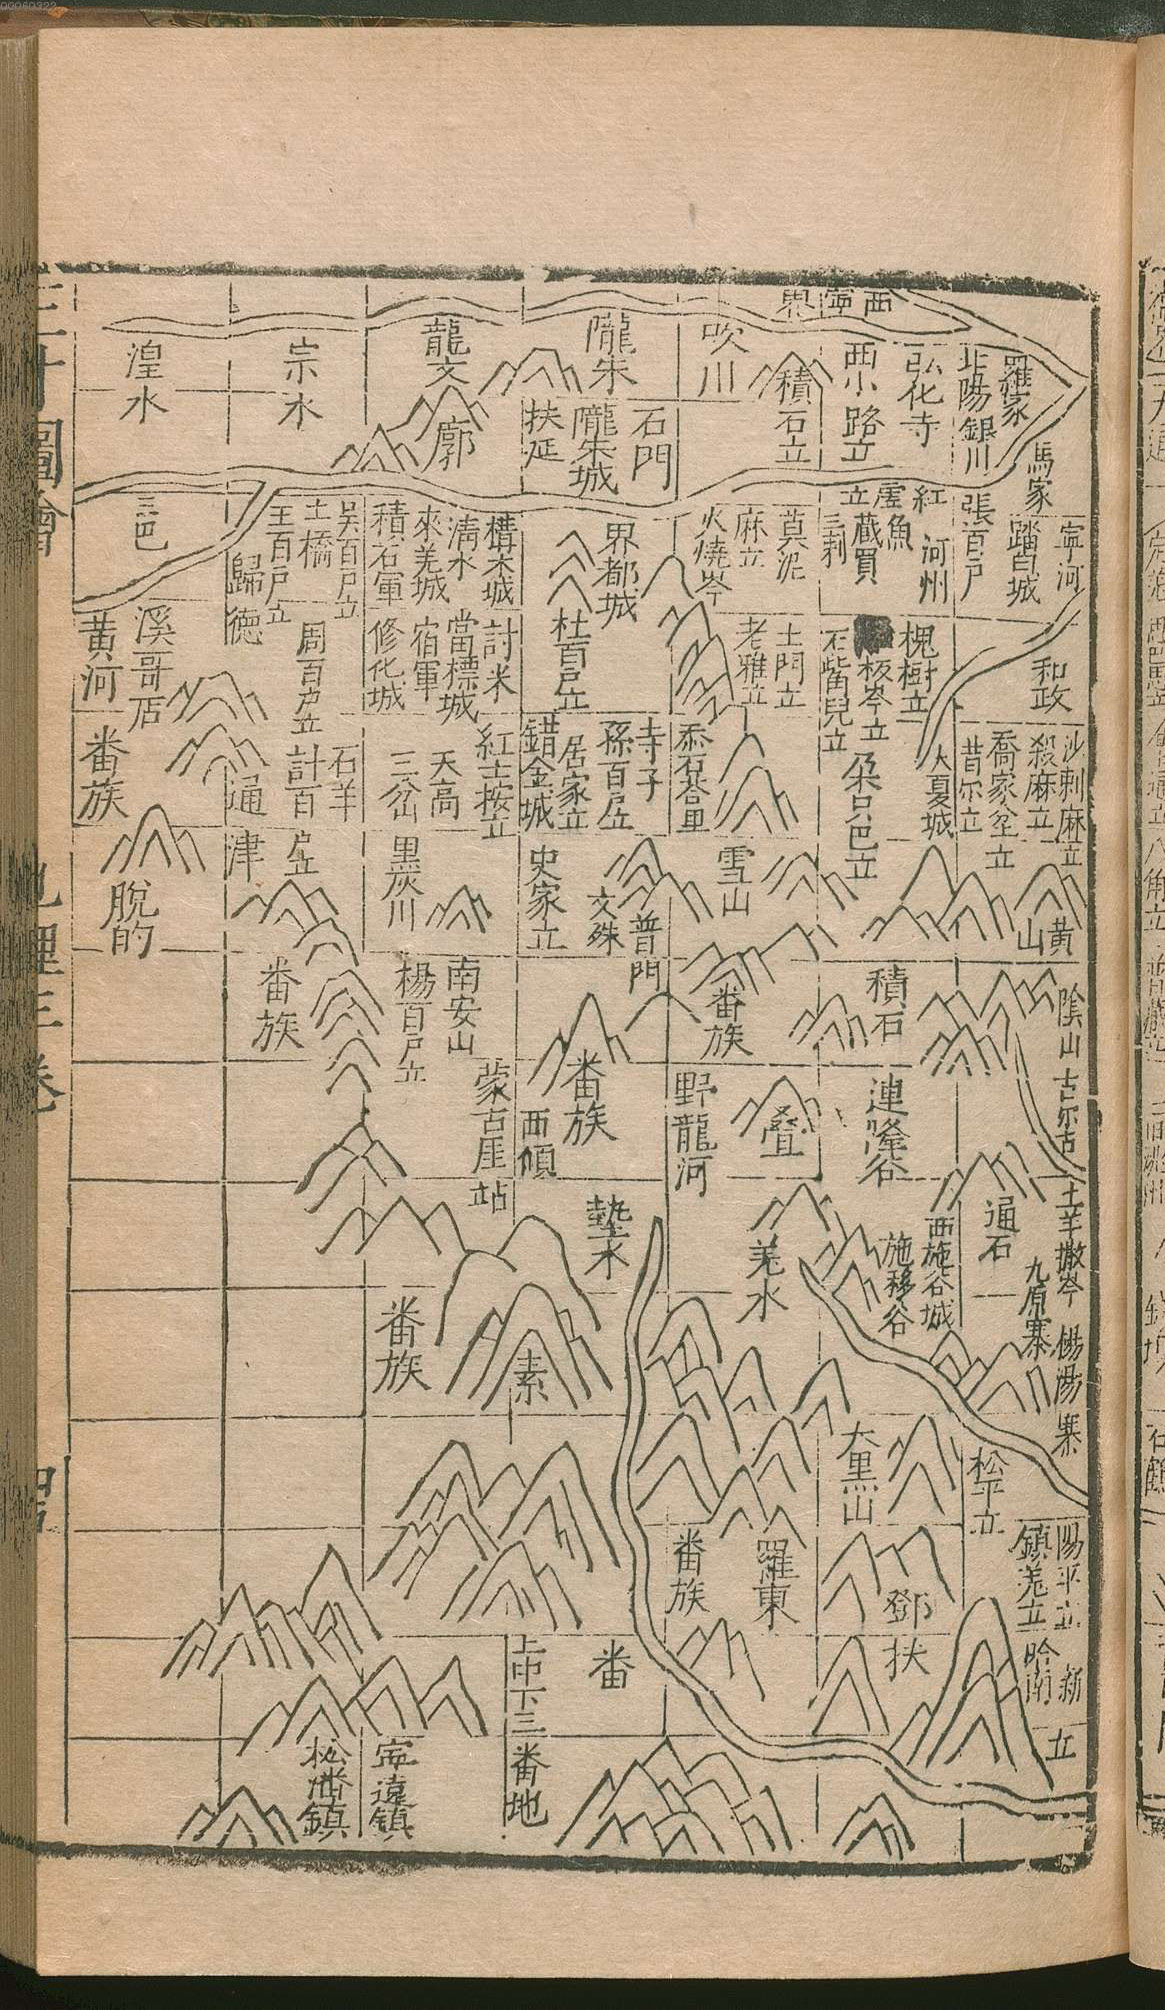 00060322
西寧界
羅家
馬家
北陽銀川
弘化寺
西小路立
積石立
吹川
隴朱
石門
隴朱城
扶延
龍文
廓
宗水
湟水
寧河
踏白城
張百戶
紅崖立
河州
魚
蔵買
三剌
莫泥
麻立
火燒岺
界都城
構米城
清水
來羌城
積石軍
吳百戶立
土橋
王百戶立
歸德
三巴
和政
槐樹立
板岺立
石嘴兒立
土門立
老雅立
杜百戶立
討米
當標城
宿軍
修化城
周百戶立
溪哥店
黃河
沙剌麻立
殺麻立
喬家岔立
昔尔立
大夏城
朶只巴立
寺子
孫百戶立
居家立
錯金城
紅土按立
天高
三岔
石羊
計百戶立
通津
番族
黃山
雪山
普門
文殊
史家立
黑灰川
脫的
陰山
古尔古
積石
番族
南安山
楊百戶立
番族
連峯谷
叠
野龍河
番族
西傾
蒙古崖站
土羊撒岺
九原寨
通石
西施谷城
施移谷
羌水
墊水
素
番族
偒湯寨
松平立
大黑山
陽平立
鎮羌立
鄧
羅東
番族
新立
哈南
扶
番
上中下三番地
寧遠鎮
松潘鎮
三才圖會
地理三卷